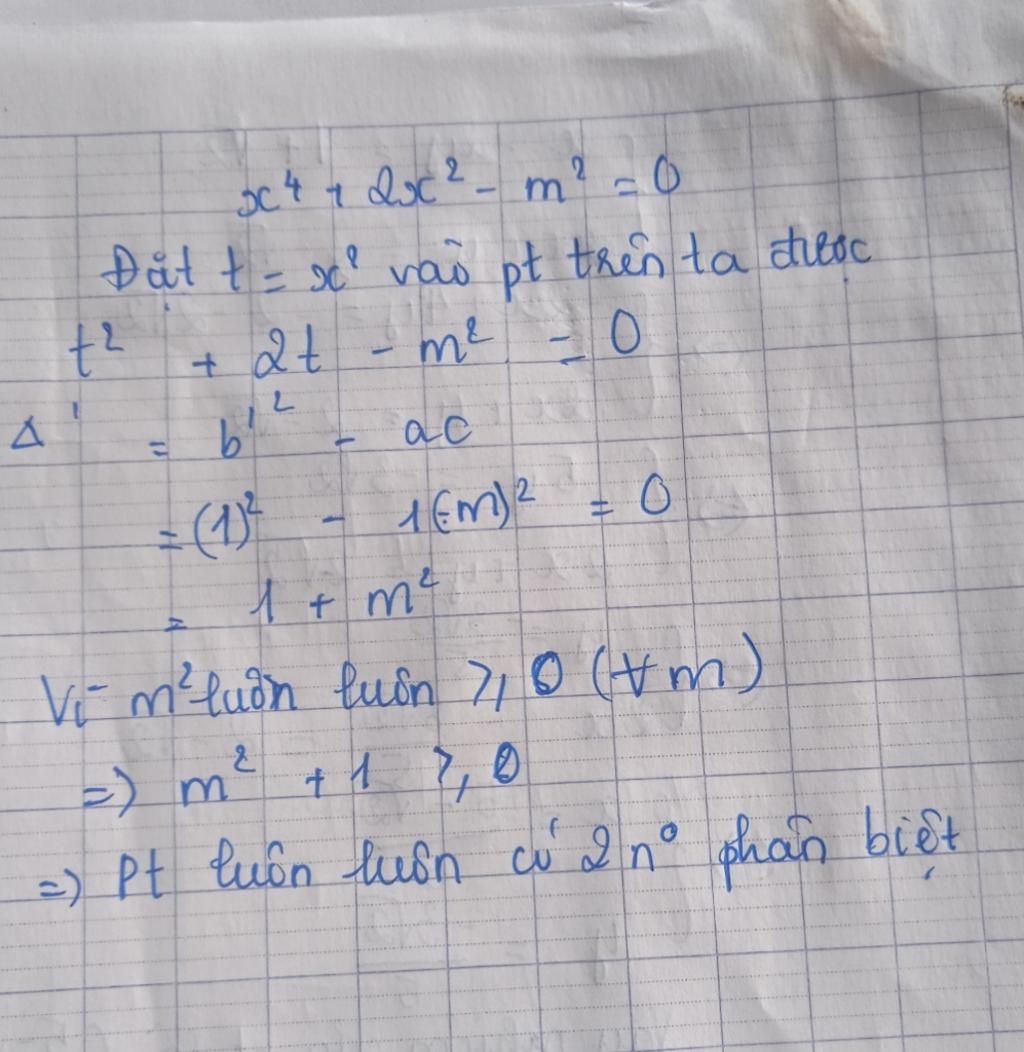 x⁴ + 2x² - m² = 0
Đặt t = x² vào pt trên ta được
t² + 2t - m² = 0
Δ' = b'² - ac
= (1)² - 1(-m)² = 0
= 1 + m²
Vì m² luôn luôn ≥ 0 (∀m)
=> m² + 1 ≥ 0
=> Pt luôn luôn có 2 n⁰ phân biệt